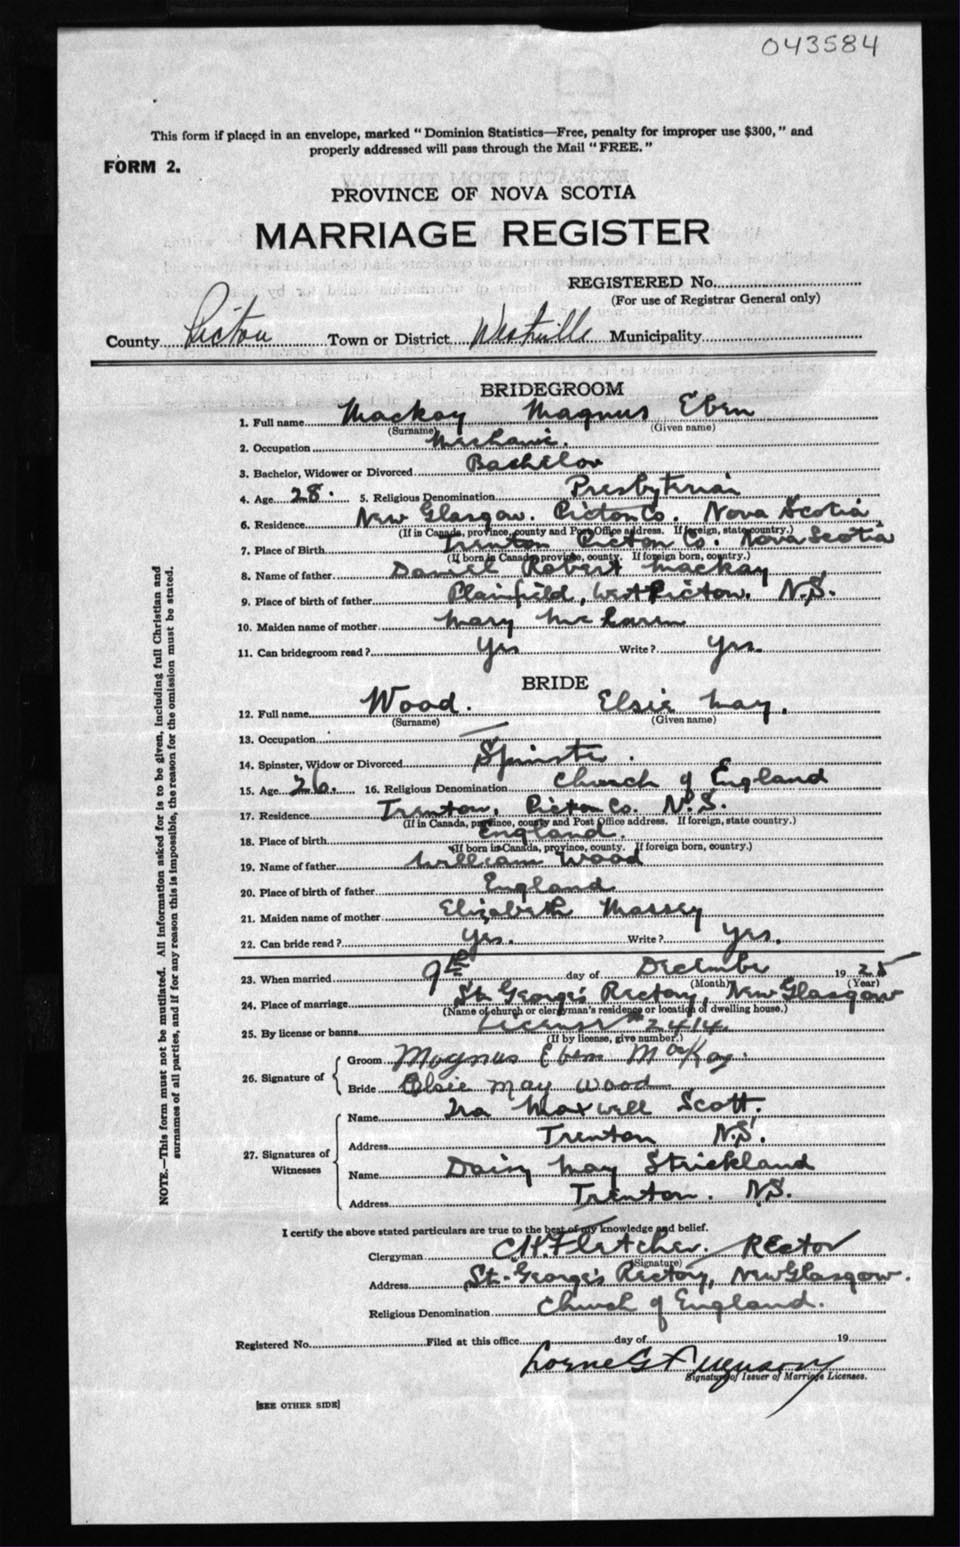 043584
This form if placed in an envelope, marked "Dominion Statistics—Free, penalty for improper use $300," and
properly addressed will pass through the Mail "FREE."
FORM 2.
PROVINCE OF NOVA SCOTIA
MARRIAGE REGISTER
REGISTERED No.
(For use of Registrar General only)
County Pictou Town or District Westville Municipality
BRIDEGROOM
1. Full name Mackay Magnus Eben
(Surname) (Given name)
2. Occupation
3. Bachelor, Widower or Divorced Bachelor
4. Age 28. 5. Religious Denomination Presbyterian
6. Residence New Glasgow. Pictou Co. Nova Scotia
(If in Canada, province, county and Post Office address. If foreign, state country.)
7. Place of Birth Trenton Pictou Co. Nova Scotia
(If born in Canada, province, county. If foreign born, country.)
8. Name of father Daniel Robert Mackay
9. Place of birth of father Plainfield, West Pictou. N.S.
10. Maiden name of mother Mary McLaren
11. Can bridegroom read? Yes Write? Yes.
BRIDE
12. Full name Wood. Elsie May.
(Surname) (Given name)
13. Occupation —
14. Spinster, Widow or Divorced Spinster.
15. Age 26. 16. Religious Denomination Church of England
17. Residence Trenton, Pictou Co. N.S.
(If in Canada, province, county and Post Office address. If foreign, state country.)
18. Place of birth England.
(If born in Canada, province, county. If foreign born, country.)
19. Name of father William Wood
20. Place of birth of father England
21. Maiden name of mother Elizabeth Massey
22. Can bride read? Yes. Write? Yes.
23. When married 9th day of December 1925
(Month) (Year)
24. Place of marriage St. George's Rectory, New Glasgow
(Name of church or clergyman's residence or location of dwelling house.)
25. By license or banns License # 2414.
(If by license, give number.)
26. Signature of
Groom Magnus Eben McKay.
Bride Elsie May Wood
27. Signatures of Witnesses
Name Ira Maxwell Scott.
Address Trenton N.S.
Name Daisy May Strickland
Address Trenton. N.S.
I certify the above stated particulars are true to the best of my knowledge and belief.
Clergyman C.W. Fletcher. Rector
(Signature)
Address St. George's Rectory, New Glasgow.
Religious Denomination Church of England.
Registered No. Filed at this office day of 19
Lorne G Ferguson
Signature of Issuer of Marriage Licenses.
[SEE OTHER SIDE]
NOTE.—This form must not be mutilated. All information asked for is to be given, including full Christian and
surnames of all parties, and if for any reason this is impossible, the reason for the omission must be stated.